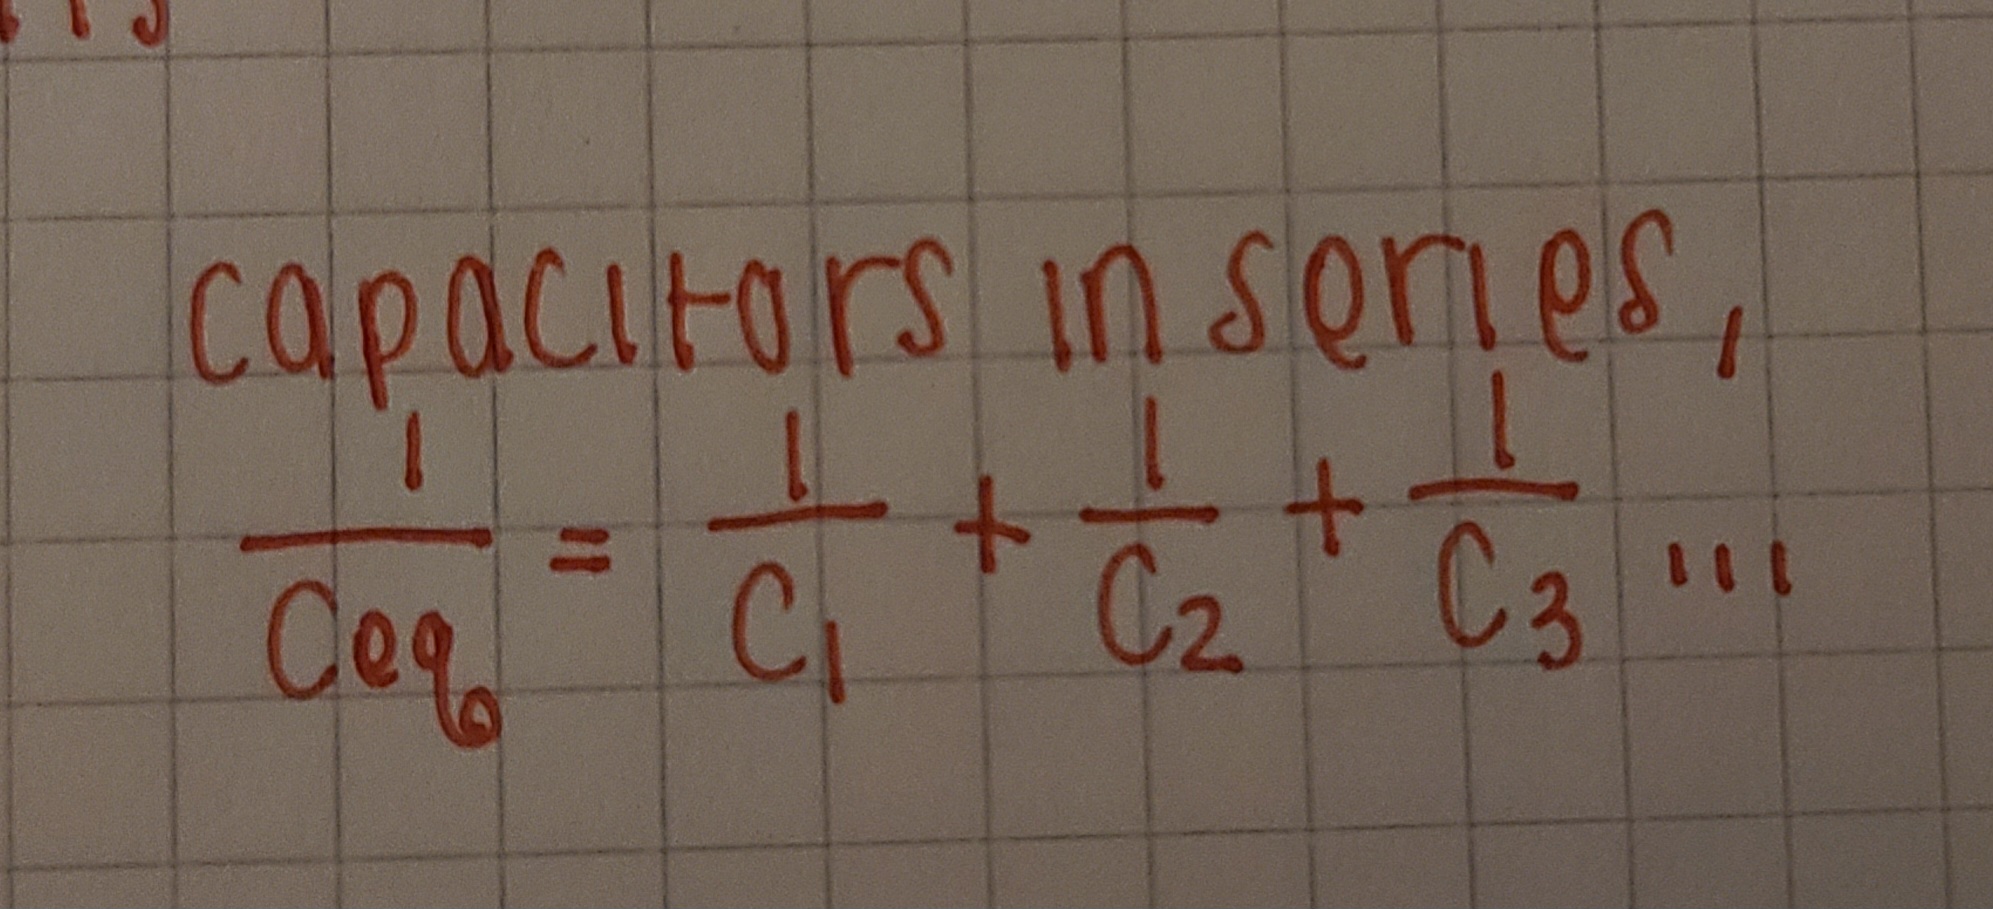 capacitors in series,
1/Ceq = 1/C1 + 1/C2 + 1/C3 ...